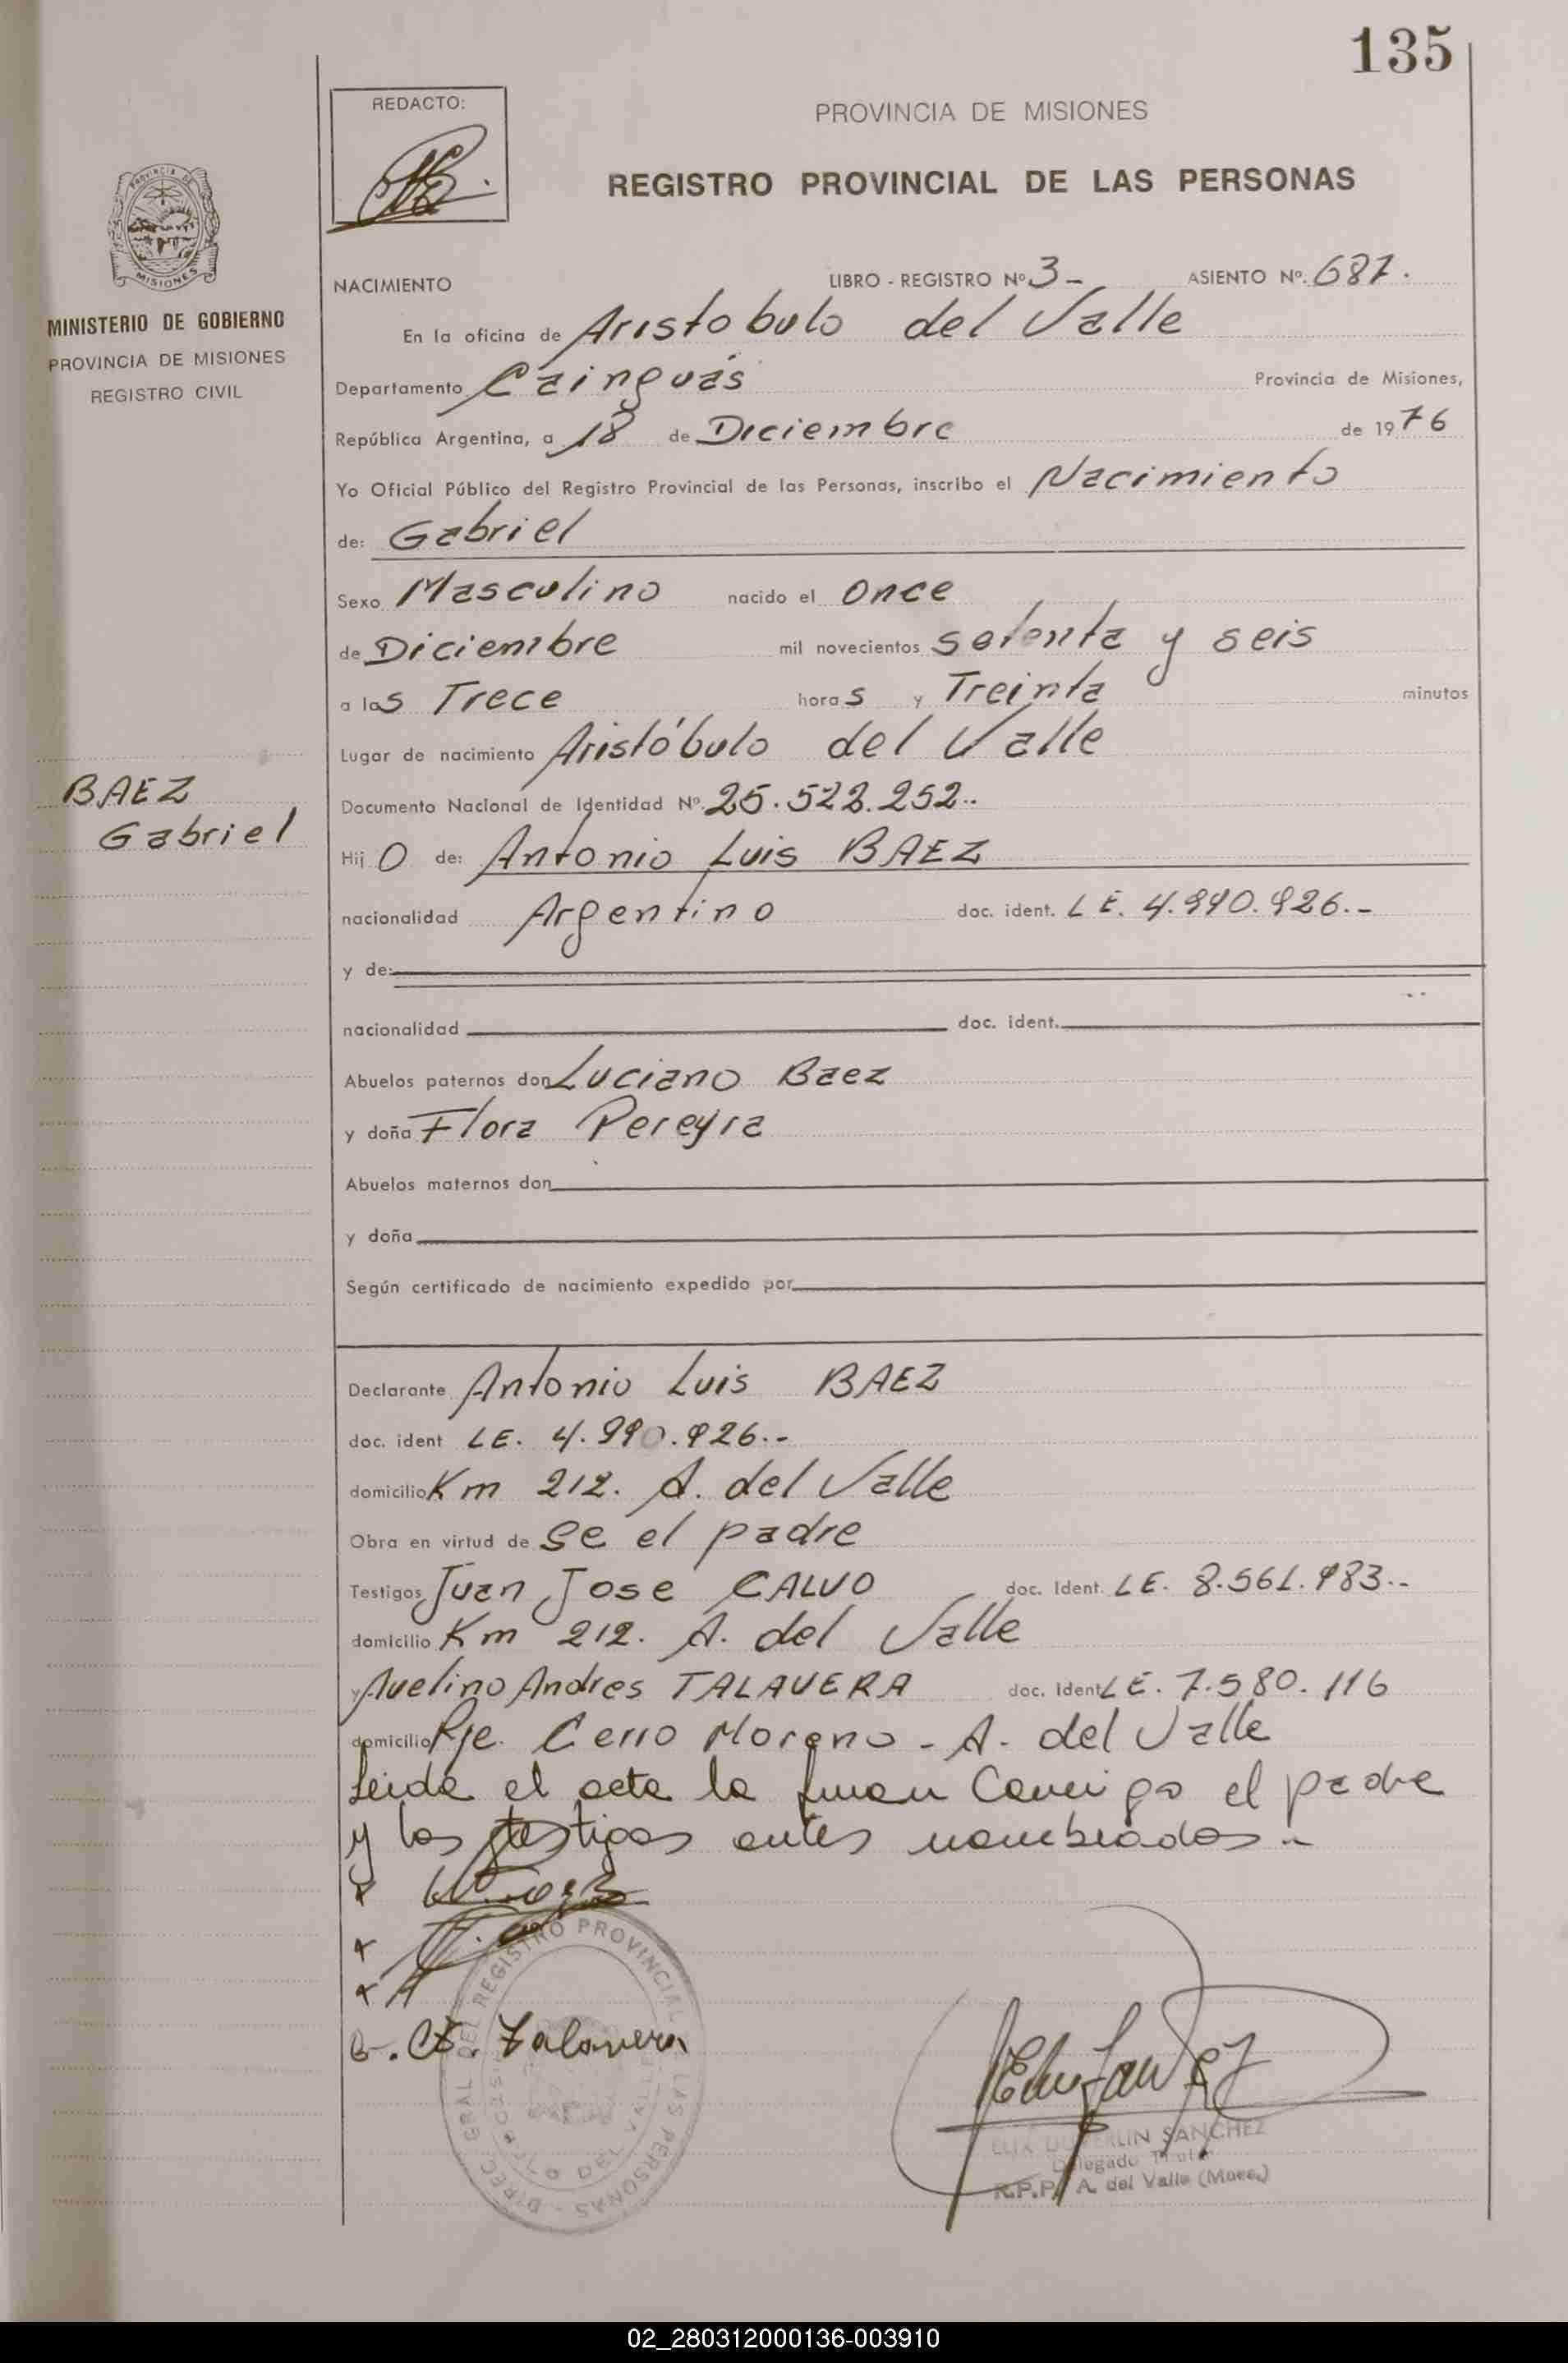 135
REDACTO:
PROVINCIA DE MISIONES
REGISTRO PROVINCIAL DE LAS PERSONAS
PROVINCIA DE
MISIONES
MINISTERIO DE GOBIERNO
PROVINCIA DE MISIONES
REGISTRO CIVIL
NACIMIENTO LIBRO - REGISTRO Nº 3- ASIENTO Nº. 687.
En la oficina de Aristobulo del Valle
Departamento Cainguás Provincia de Misiones,
República Argentina, a 18 de Diciembre de 1976
Yo Oficial Público del Registro Provincial de las Personas, inscribo el Nacimiento
de: Gabriel
Sexo Masculino nacido el once
de Diciembre mil novecientos setenta y seis
a las Trece horas y Treinta minutos
Lugar de nacimiento Aristóbulo del Valle
BAEZ
Gabriel
Documento Nacional de Identidad Nº. 25.522.252..
Hijo de: Antonio Luis BAEZ
nacionalidad Argentino doc. ident. LE.
y de:
nacionalidad doc. ident.
Abuelos paternos don Luciano Baez
y doña Flora Pereyra
Abuelos maternos don
y doña
Según certificado de nacimiento expedido por
Declarante Antonio Luis BAEZ
doc. ident LE.
domicilio Km 212. A. del Valle
Obra en virtud de se el padre
Testigos Juan Jose CALVO doc. Ident. LE. 8.561.983..
domicilio Km 212. A. del Valle
y Avelino Andres TALAVERA doc. Ident LE. 7.580.116
domicilio Pje. Cerro Moreno - A. del Valle
Leida el acta la firman Conmigo el padre
y los testigos antes nombrados.-
Talavera
DIREC. GRAL. DEL REGISTRO PROVINCIAL DE LAS PERSONAS
SANCHEZ
Delegado Titular
R.P.P. A. del Valle (Mnes.)
02_280312000136-003910